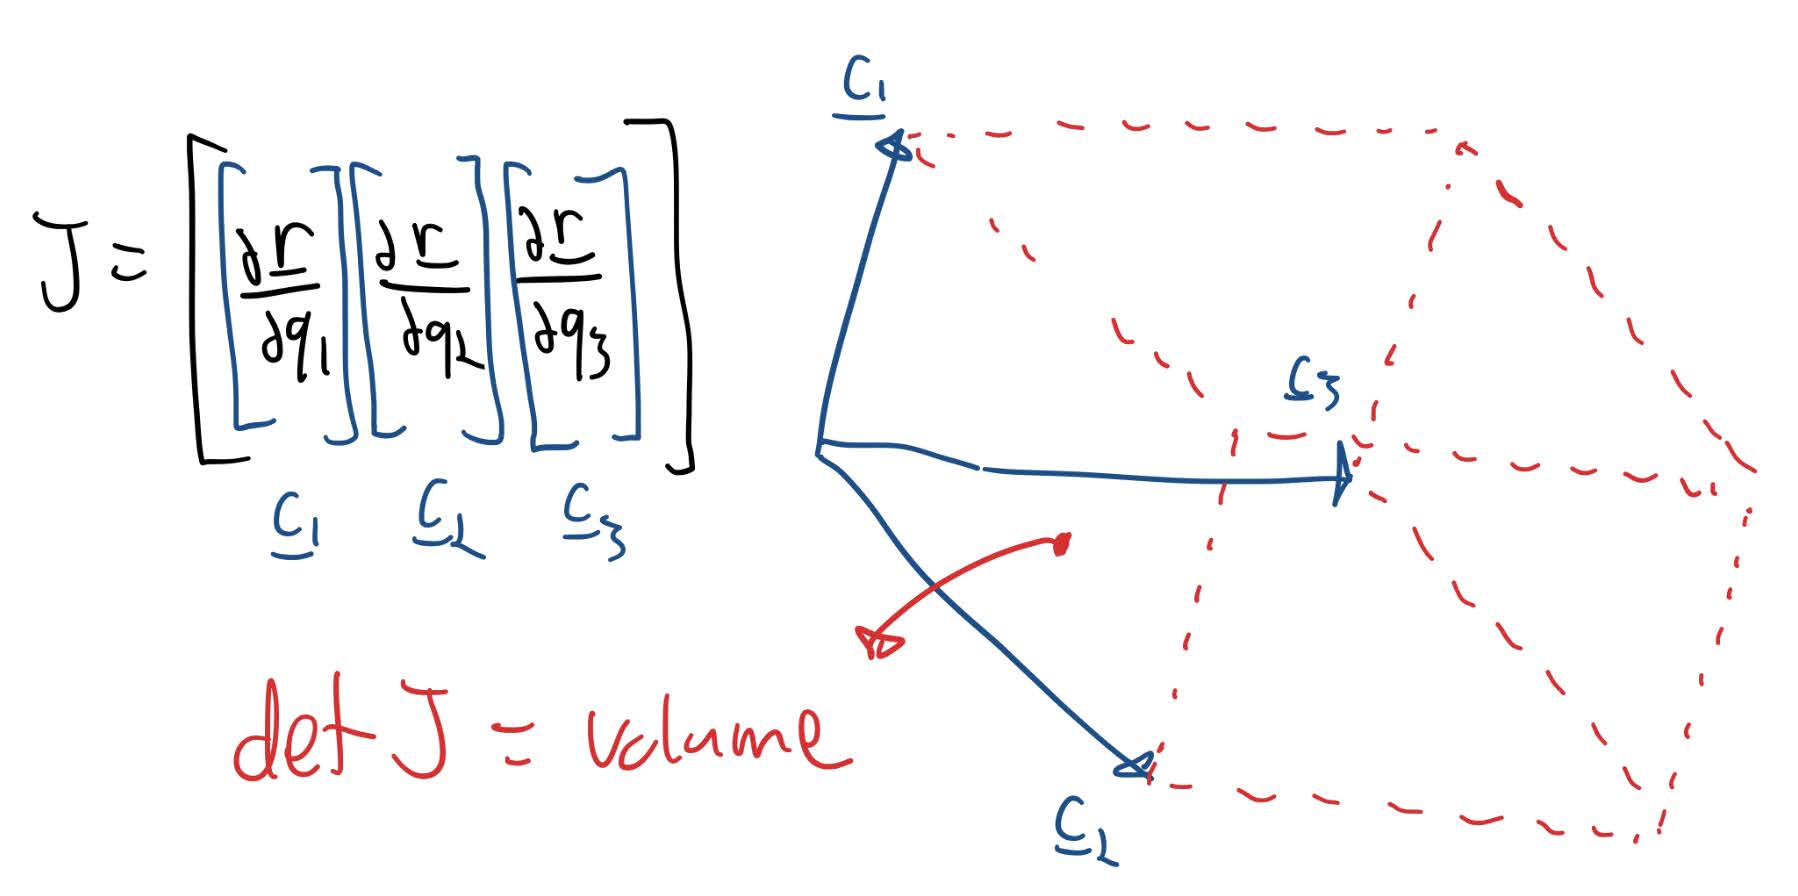 J = [[∂r/∂q1] [∂r/∂q2] [∂r/∂q3]]
c1 c2 c3
det J = volume
c1
c3
c2